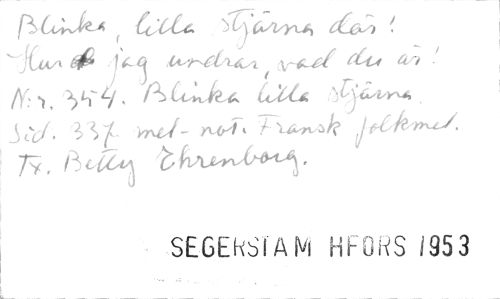 Blinka, lilla stjärna där!
Hur jag undrar, vad du är!
N:r. 354. Blinka lilla stjärna.
Sid. 337. mel-not. Fransk folkmel.
Tx. Betty Ehrenborg.
SEGERSTAM HFORS 1953